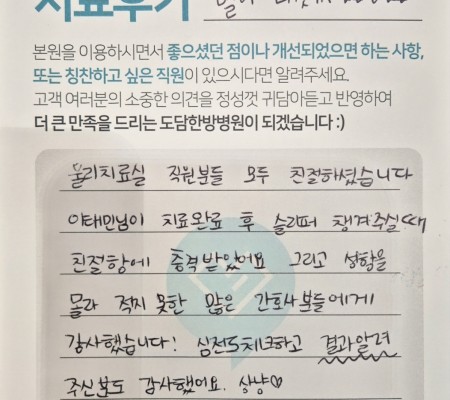 치료후기
본원을 이용하시면서 좋으셨던 점이나 개선되었으면 하는 사항,
또는 칭찬하고 싶은 직원이 있으시다면 알려주세요.
고객 여러분의 소중한 의견을 정성껏 귀담아듣고 반영하여
더 큰 만족을 드리는 도담한방병원이 되겠습니다 :)
물리치료실 직원분들 모두 친절하셨습니다
이태민님이 치료완료 후 슬리퍼 챙겨주실때
친절함에 충격받았어요 그리고 성함을
몰라 적지 못한 많은 간호사분들에게
감사했습니다! 심전도체크하고 결과알려
주신분도 감사했어요. 상냥♡